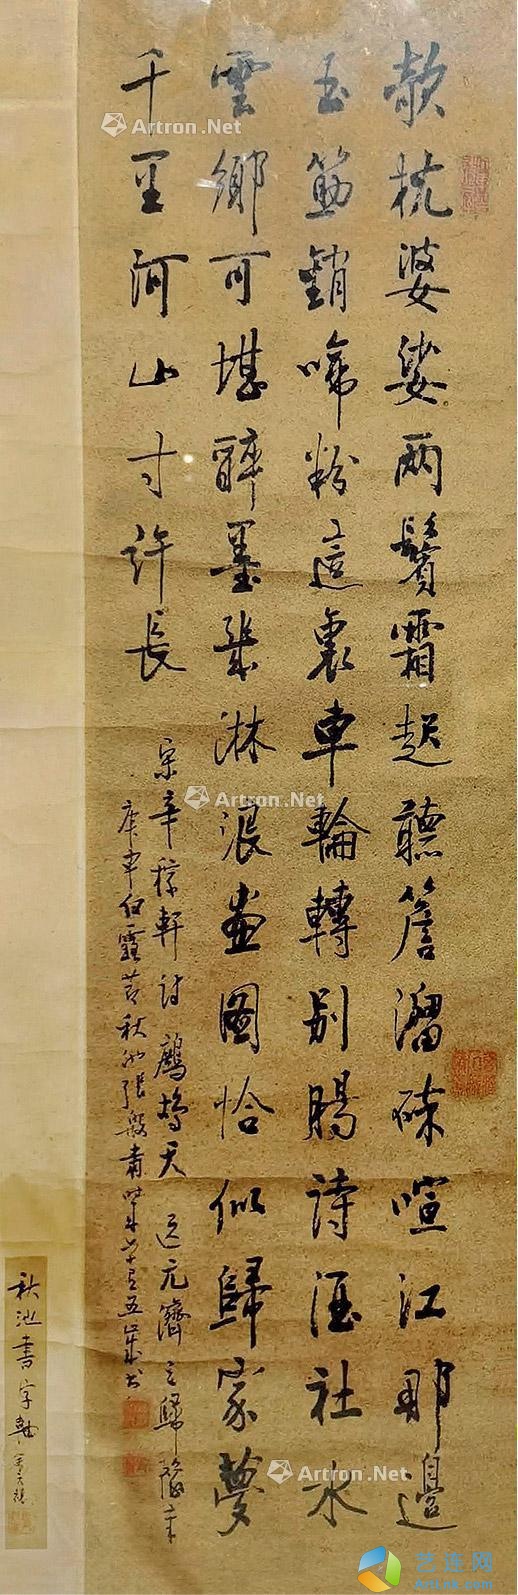 欹枕婆娑兩鬢霜起聽簷溜碎喧江那邊
玉筯銷啼粉這裏車輪轉別腸詩酒社水
雲鄉可堪醉墨幾淋浪畫圖恰似歸家夢
千里河山寸許長
宋辛稼軒詩鷓鴣天送元濟之歸豫章
庚申白露 秋池張 五歲書
秋池書字軸
Artron.Net
Artron.Net
Artron.Net
艺连网